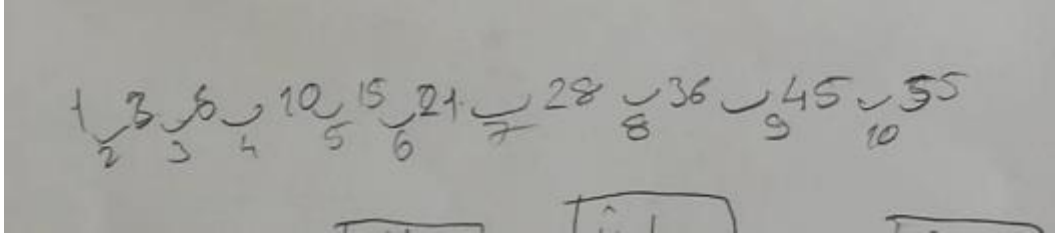 1 3 6 10 15 21 28 36 45 55
2 3 4 5 6 7 8 9 10